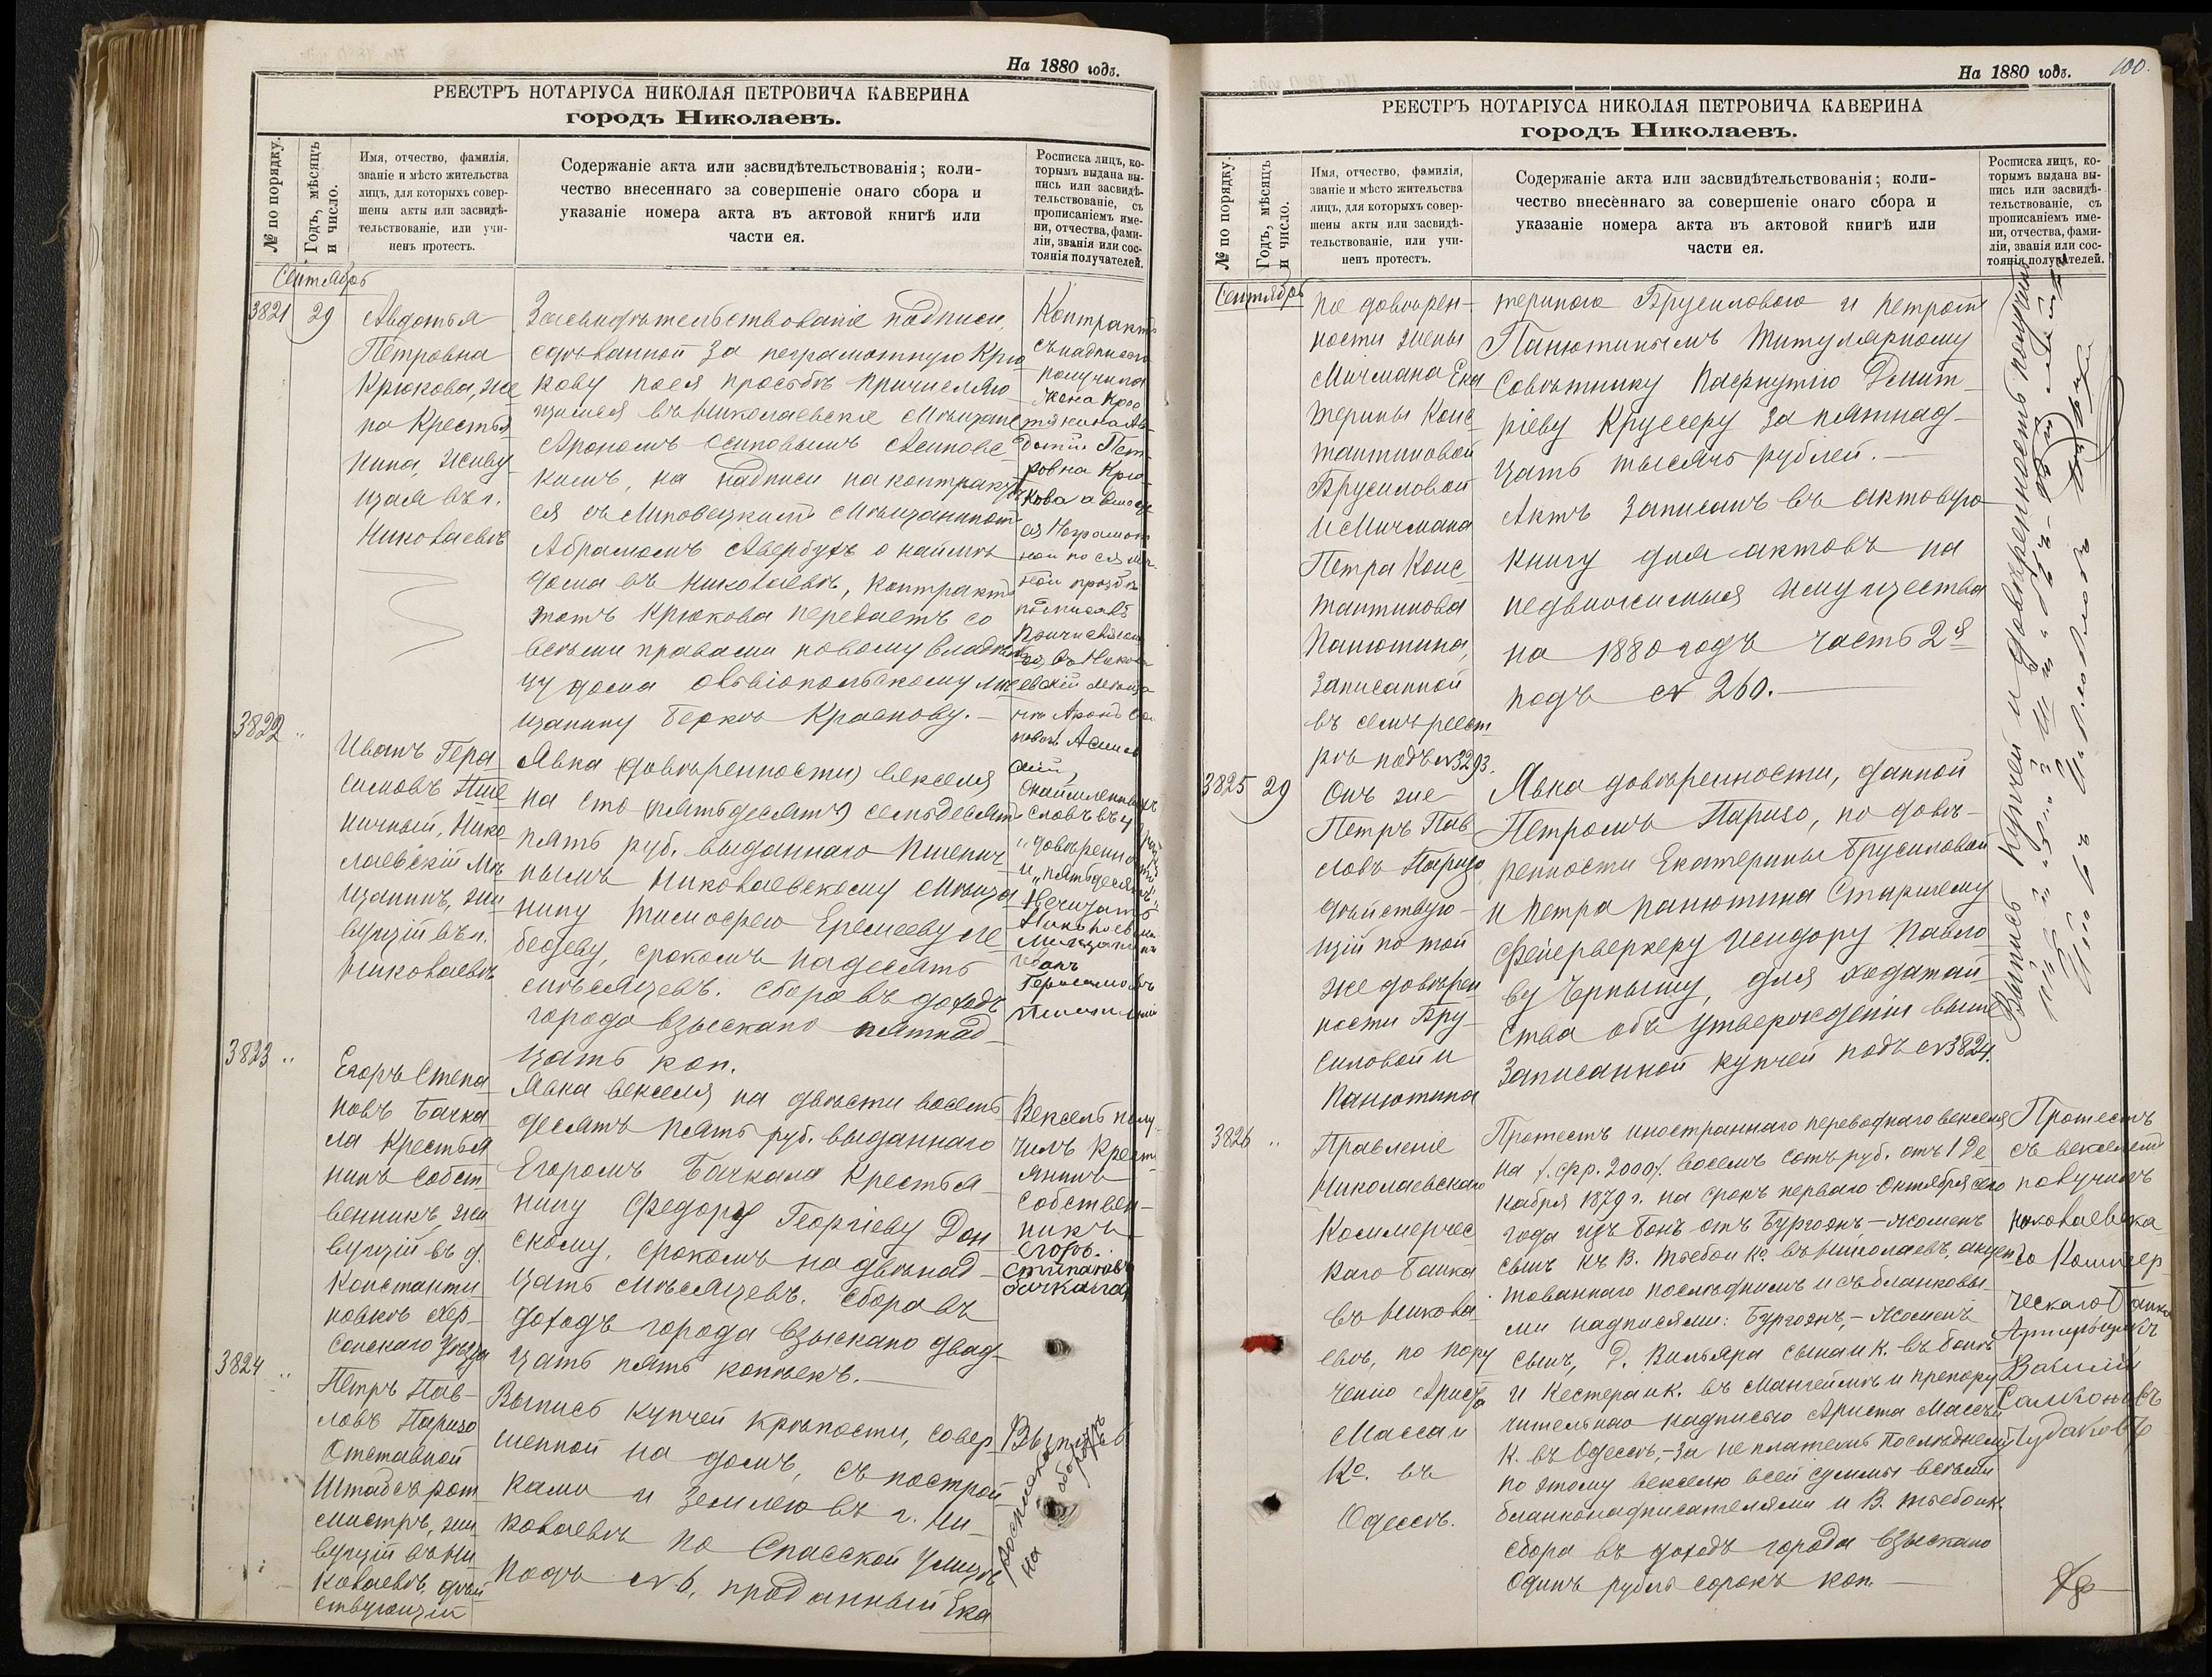 На 1880 годъ.
РЕЕСТРЪ НОТАРІУСА НИКОЛАЯ ПЕТРОВИЧА КАВЕРИНА
городъ Николаевъ.
№ по порядку.
Годъ, мѣсяцъ
и число.
Имя, отчество, фамилія,
званіе и мѣсто жительства
лицъ, для которыхъ совер-
шены акты или засвидѣ-
тельствованіе, или учи-
ненъ протестъ.
Содержаніе акта или засвидѣтельствованія; коли-
чество внесеннаго за совершеніе онаго сбора и
указаніе номера акта въ актовой книгѣ или
части ея.
Росписка лицъ, ко-
торымъ выдана вы-
пись или засвидѣ-
тельствованіе, съ
прописаніемъ име-
ни, отчества, фами-
ліи, званія или сос-
тоянія получателей.
Сентябрь
3821
29
Авдотья
Петровна
Крюкова, же
на Крестья
нина, живу
щая въ г.
Николаевѣ
Засвидѣтельствованіе надписи,
сдѣланной за неграмотную Крю
кову по ея просьбѣ причисляю
щимся въ Николаевскіе Мѣщане
Арономъ Осиповымъ
на надписи на контрактѣ
ея съ Мѣщаниномъ
Абрамомъ Авербухъ о наймѣ
дома въ Николаевѣ, контрактъ
этотъ Крюкова передаетъ со
всѣми правами новому владѣль
цу дома Овѣіопольскому мѣ
щанину Беркѣ Краснову.
Контрактъ
съ надписью
получила
жена Крес
тьянина Ав
дотья Пет
ровна Крю
кова а вмѣсто
ея неграмот
ной по ея лич
ной прозьбѣ
росписался
3822
Иванъ Гера
симовъ Пше
ничный, Нико
лаевскій Мѣ
щанинъ, жи
вущій въ г.
Николаевѣ
Явка (довѣренности) векселя
на сто (пятьдесятъ) семьдесятъ
пять руб. выданнаго Пшенич
нымъ Николаевскому Мѣща
нину Тимофею Еремееву Ле
бедеву, срокомъ на десять
мѣсяцевъ. Сбора въ доходъ
города взыскано пятнад
цать коп.
3823
Егоръ Степа
новъ Бачка
ла Крестья
нинъ собст
венникъ, жи
вущій въ д.
Константи
новкѣ Хер
сонскаго уѣзда
Явка векселя на двѣсти восемь
десятъ пять руб. выданнаго
Егоромъ Бачкала Крестья
нину Федору Георгіеву Дон
скому, срокомъ на двѣнад
цать мѣсяцевъ. Сбора въ
доходъ города взыскано двад
цать пять копѣекъ.
Вексель полу
чилъ Крест
янинъ
собствен-
никъ
Егоръ
Степановъ
Бачкала
3824
Петръ Пав-
ловъ Паризо
Отставной
Штабсъ рот
мистръ, жи
вущій въ Ни
колаевѣ, дѣй
ствующій
Выпись купчей крѣпости, совер
шенной на домъ, съ построй
ками и землею въ г. Ни
колаевѣ по Спасской улицѣ
подъ № 6, проданный Ека
Выпись
росписка
на оборотѣ
На 1880 годъ.
100.
РЕЕСТРЪ НОТАРІУСА НИКОЛАЯ ПЕТРОВИЧА КАВЕРИНА
городъ Николаевъ.
№ по порядку.
Годъ, мѣсяцъ
и число.
Имя, отчество, фамилія,
званіе и мѣсто жительства
лицъ, для которыхъ совер-
шены акты или засвидѣ-
тельствованіе, или учи-
ненъ протестъ.
Содержаніе акта или засвидѣтельствованія; коли-
чество внесеннаго за совершеніе онаго сбора и
указаніе номера акта въ актовой книгѣ или
части ея.
Росписка лицъ, ко-
торымъ выдана вы-
пись или засвидѣ-
тельствованіе, съ
прописаніемъ име-
ни, отчества, фами-
ліи, званія или сос-
тоянія получателей.
Сентябрь
по довѣрен-
ности жены
Мичмана Ека
терины Конс
тантиновой
Брусиловой
и Мичмана
Петра Конс
тантинова
Панютина,
записанной
въ семъ реест
рѣ подъ № 3293.
териною Брусиловою и Петромъ
Панютинымъ Титулярному
Совѣтнику Дмит
ріеву Крусеру за пятнад-
цать тысячъ рублей.
Актъ записанъ въ актовую
книгу для актовъ на
недвижимыя имущества
на 1880 годъ часть 2я
подъ № 260.
Выпись купчей и довѣренность получилъ
3825
29
Онъ же
Петръ Пав
ловъ Паризо
дѣйствую-
щій по той
же довѣрен
ности Бру
силовой и
Панютина
Явка довѣренности, данной
Петромъ Паризо, по довѣ-
ренности Екатерины Брусиловой
и Петра Панютина Старшему
Фейерверкеру Исидору Павло
ву Чернышу, для ходатай
ства объ утвержденіи выше
записанной купчей подъ № 3824.
3826
Правленіе
Николаевскаго
Коммерчес
каго Банка
въ Никола
евѣ, по пору
ченію Ариста
Массаи
Ко. въ
Одессѣ.
Протестъ иностраннаго переводнаго векселя
на /. фр. 2000/. восемь сотъ руб. отъ 1 Де
кабря 1879 г. на срокъ перваго Октября сего
года изъ Бонъ отъ Бургоэнъ, - Жоменъ
сынъ къ В. Тьебо и Ко. въ Николаевѣ, акцеп
тованнаго послѣднимъ и съ бланковы
ми надписями: Бургоэнъ, - Жоменъ
сынъ, Д. Вильяра сына и К. въ Бонъ
и Кестера и К. въ Мангеймѣ и препору
чительною надписью Ариста Массаи
К. въ Одессѣ, - за неплатежъ послѣднему
по этому векселю всей суммы всѣми
бланконадписателями и В. Тьебо и К.
Сбора въ доходъ города взыскано
Одинъ рубль сорокъ коп.
Протестъ
съ векселемъ
получилъ
Николаевска
го Коммер
ческаго Банка
Артельщикъ
Василій
Чудаковъ